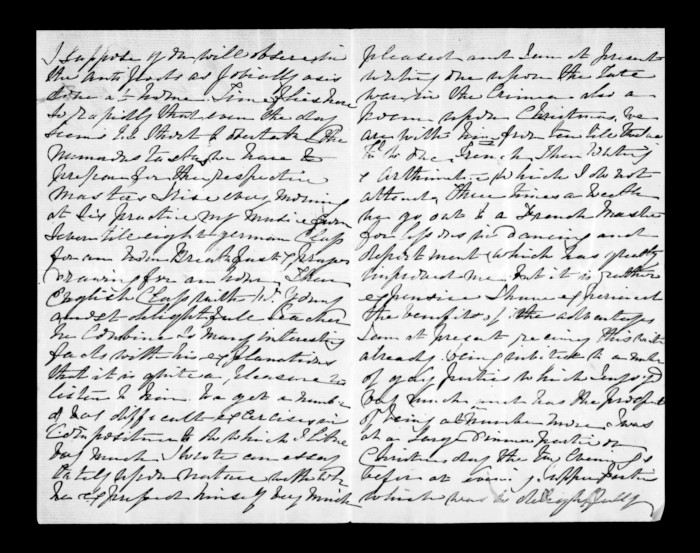 I suppose you will observe in
the Antipodes as jovially as is
done at home. Time flies here
so rapidly that even the day
seems too short to undertake the
numerous tasks we have to
prepare for the respective
masters I rise every morning
at six practice my music from
seven till eight German Class
for an hour Breakfast & prayers
Drawing for an hour, Then
English Class with Dr Young
a most delightful teacher
he combines so many interesting
facts with his explanations
that it is quite a pleasure to
listen to him. We get a number
of difficult exercises in
Composition to do which I like
very much I wrote an essay
lately upon nature with which
he expressed himself very much
pleased and I am at present
writing one upon the late
war in the Crimea also a
poem upon Christmas. We
are with him from ten till twelve
to one French, Then Writing
& arithmetic which I do not
attend, three times a week
we go out to a French Master
for lessons in dancing and
deportment which has greatly
improved me, but it is rather
expensive I have experienced
the benefits of the advantages
I am at present receiving this winter
already being invited to a number
of gay parties which I enjoyed
very much and has the prospect
of being at a number more. I was
at a large Dinner party on
Christmas day the two evenings
before at evening supper parties
which was so delightfully